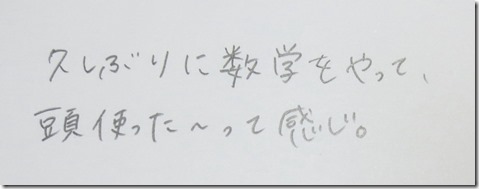 久しぶりに数学をやって、
頭使った~って感じ。